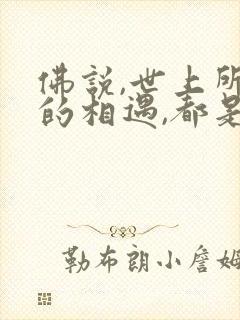 佛說,世上所
的相遇,都是
勒布朗小詹姆